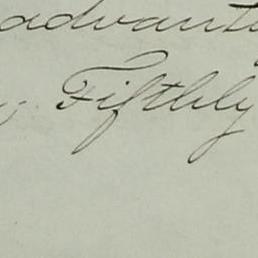 advant
Fifthly